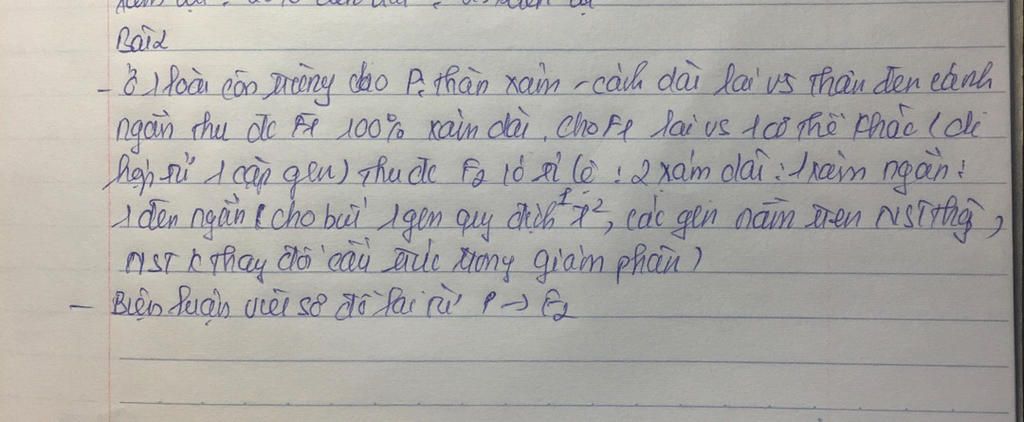 Bài 2
- Ở 1 loài côn trùng cho P: thân xám - cách dài lai vs thân đen cánh
ngắn thu đc F1 100% xám dài. Cho F1 lai vs 1 cơ thể khác (dị
hợp tử 1 cặp gen) thu đc F2 có tỉ lệ : 2 xám dài : 1 xám ngắn :
1 đen ngắn (cho biết 1 gen quy định 1 t², các gen nằm trên NST thg,
NST k thay đổi cấu trúc trong giảm phân)
- Biện luận viết sơ đồ lai từ P → F2